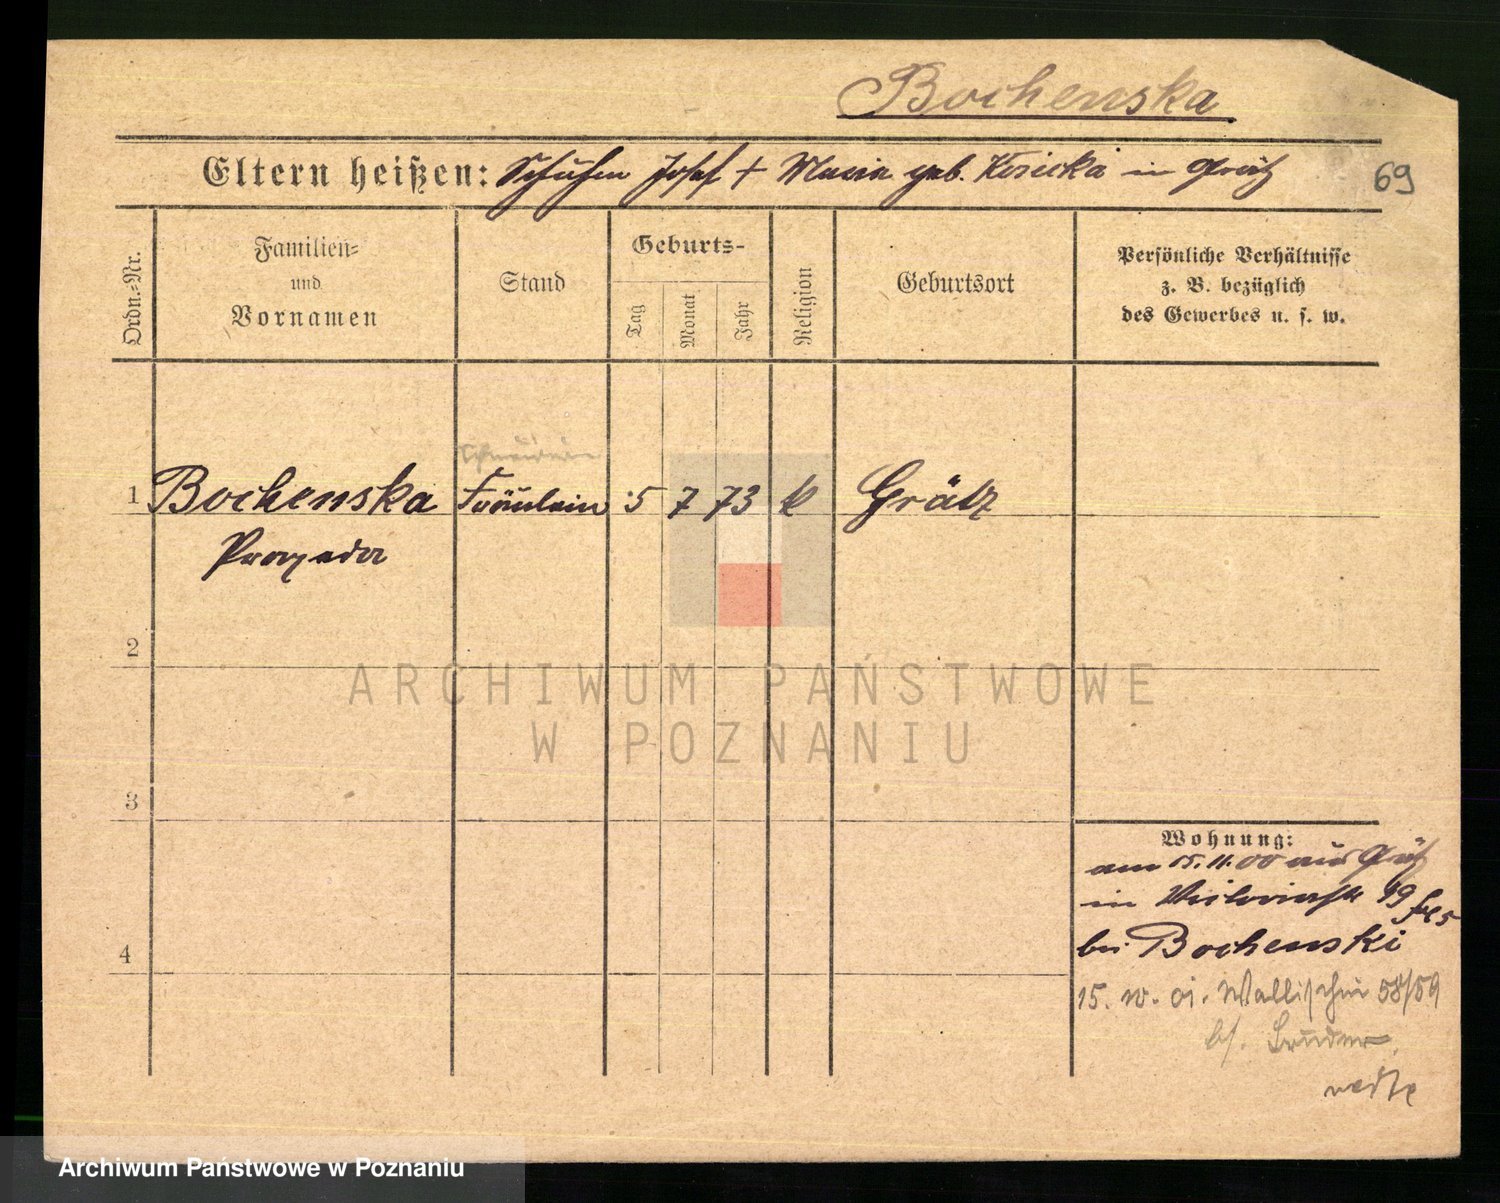 Bochenska
Eltern heißen: Josef + Maria geb. Kosicka in Grätz
69
Ordn.-Nr.
Familien-
und
Vornamen
Stand
Geburts-
Tag
Monat
Jahr
Religion
Geburtsort
Persönliche Verhältnisse
z. B. bezüglich
des Gewerbes u. s. w.
1 Bochenska Fräulein 5 7 73 k Grätz
Praxeda
2
3
4
Wohnung:
am 15.11.00 aus Grätz
in Victoriastr 19
bei Bochenski
15. 10. 01. Wallischei 58/59
b/. Bruder
ARCHIWUM PAŃSTWOWE
W POZNANIU
Archiwum Państwowe w Poznaniu